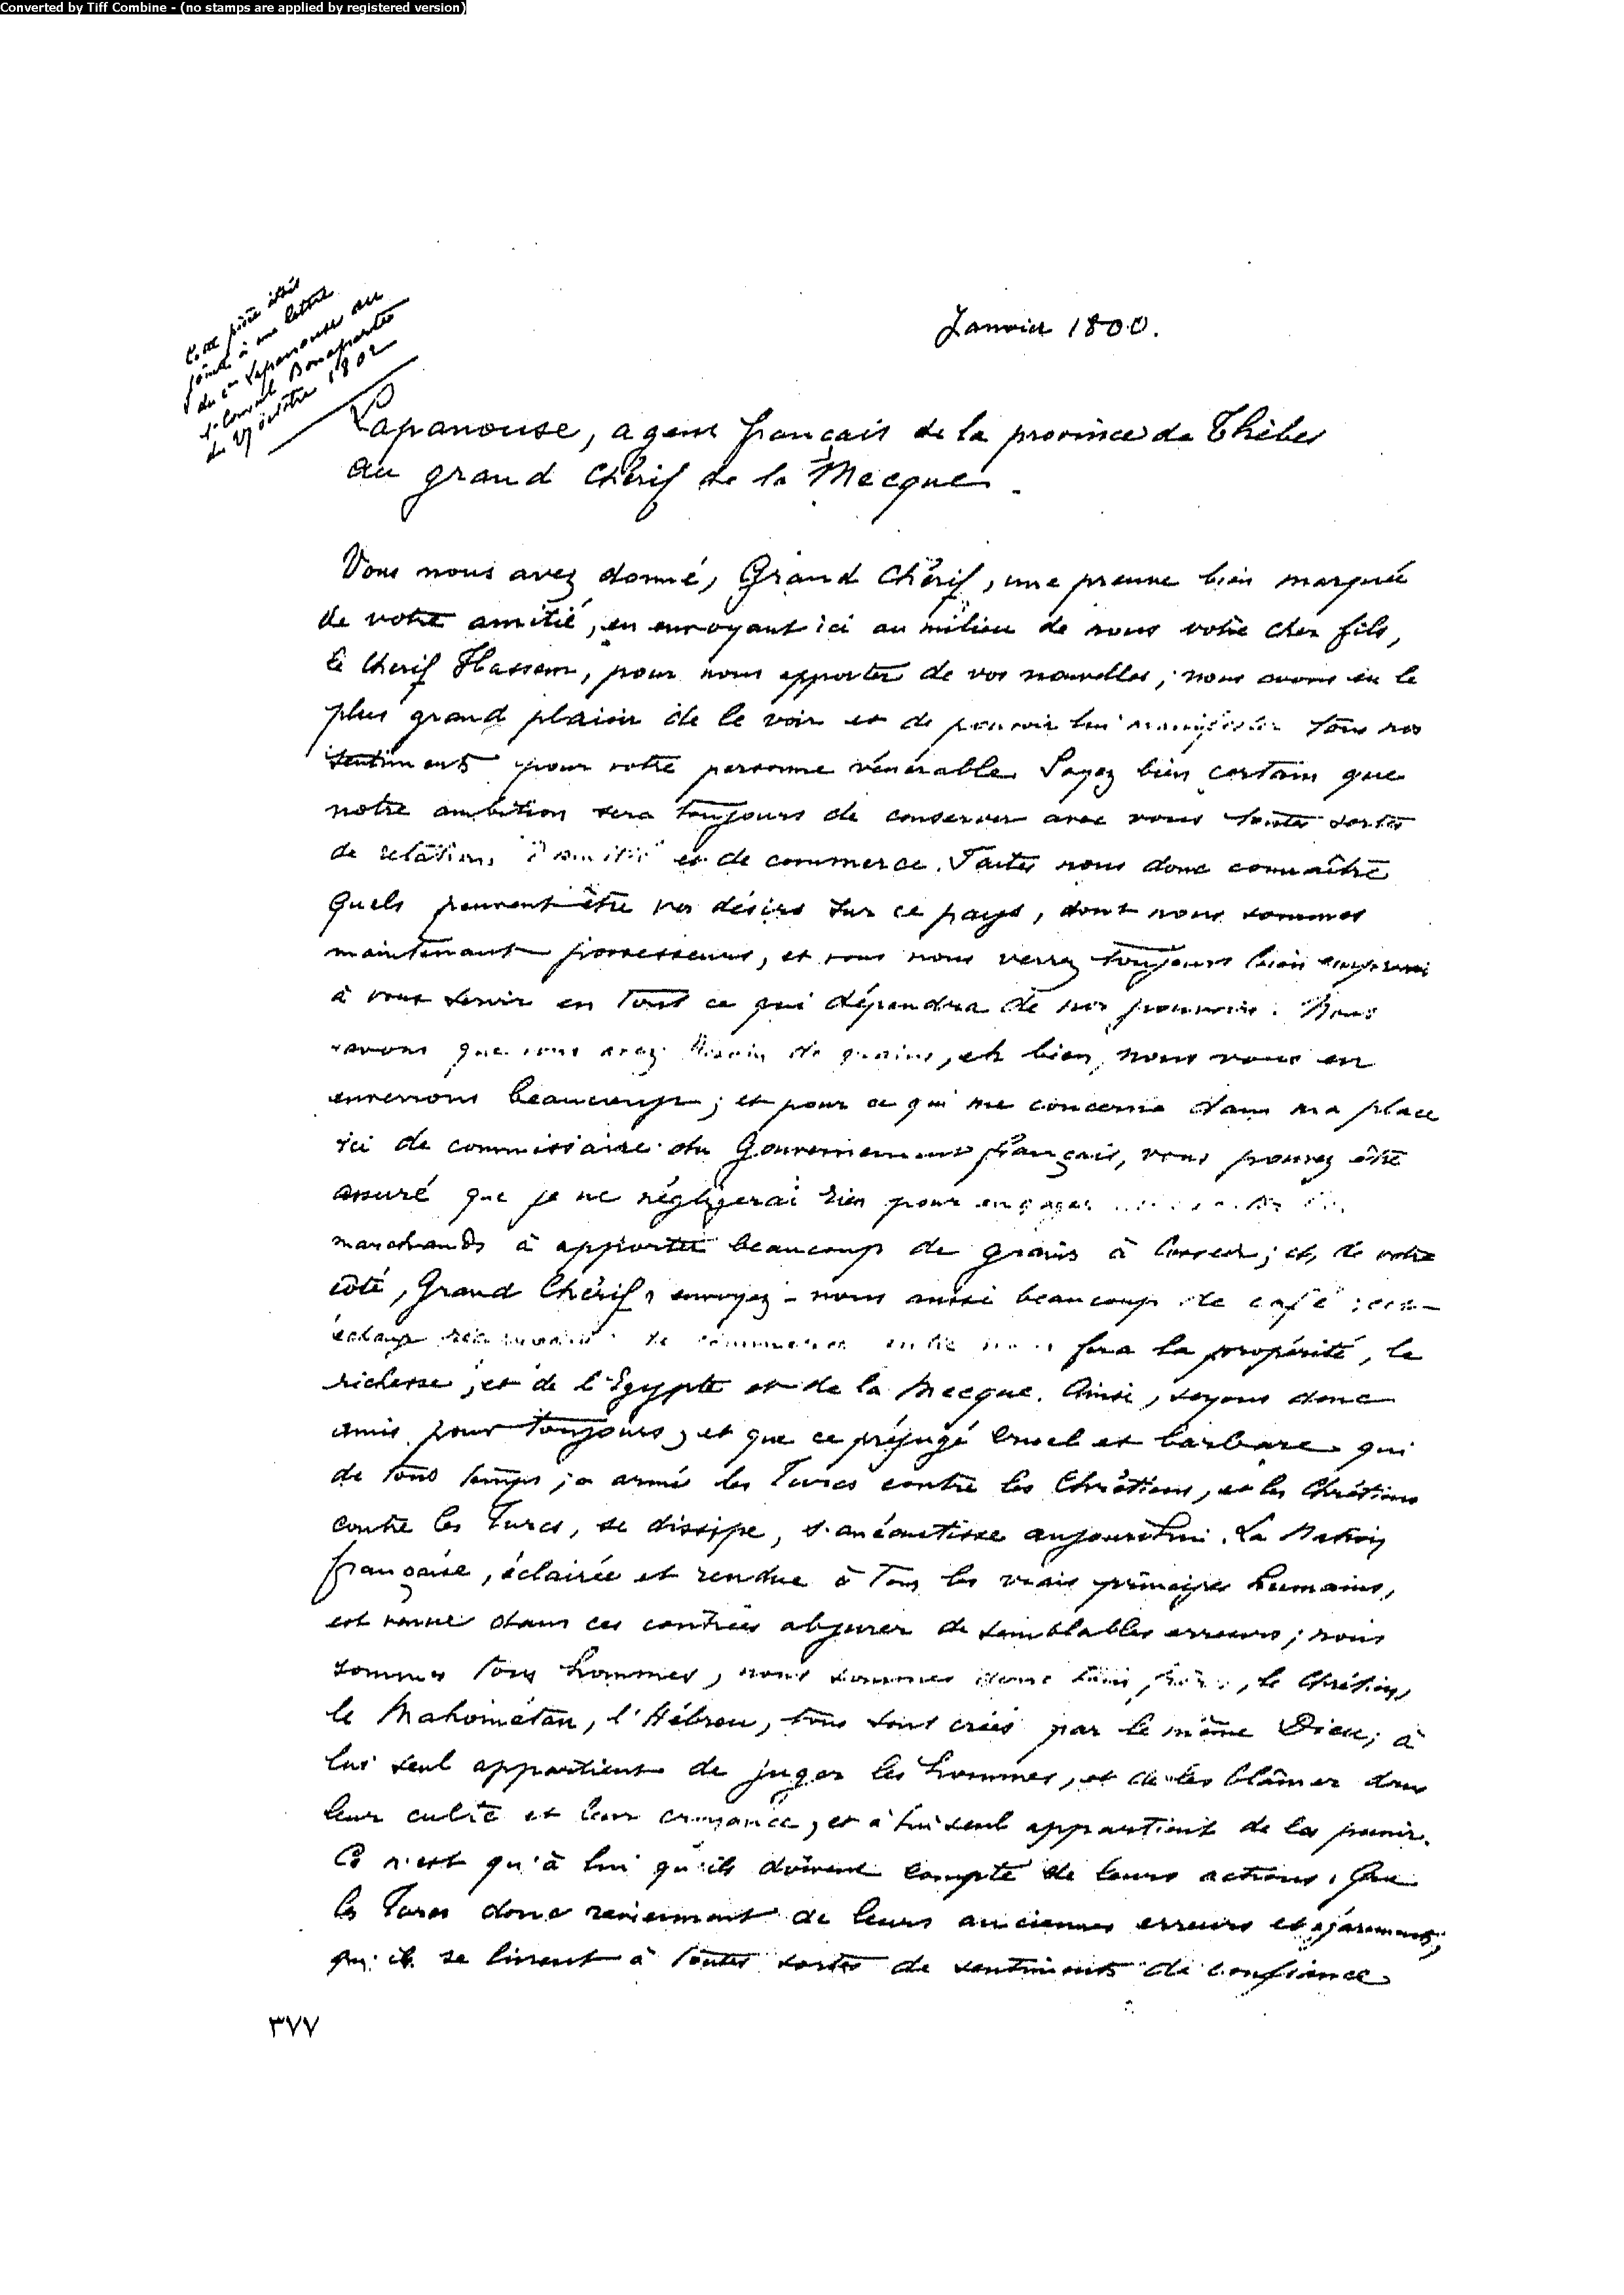 Converted by Tiff Combine - (no stamps are applied by registered version)
Cette pièce était
jointe à une lettre
du Cen Lapanouse au
1er Consul Bonaparte
du 27 octobre 1802
Janvier 1800.
Lapanouse, agent français de la province de Thèbes
au grand Chérif de la Mecque.
Vous nous avez donné, Grand Chérif, une preuve bien marquée
de votre amitié, en envoyant ici au milieu de nous votre cher fils,
le Chérif Hassan, pour nous apporter de vos nouvelles; nous avons eu le
plus grand plaisir de le voir et de pouvoir lui manifester tous nos
sentiments pour votre personne vénérable. Soyez bien certain que
notre ambition sera toujours de conserver avec vous toutes sortes
de relations d'amitié et de commerce. Faites nous donc connaître
quels peuvent être vos désirs sur ce pays, dont nous sommes
maintenant possesseurs, et vous nous verrez toujours bien empressés
à vous servir en tout ce qui dépendra de nos pouvoirs. Nous
savons que vous avez besoin de grains, eh bien, nous vous en
enverrons beaucoup; et pour ce qui me concerne dans ma place
ici de commissaire du Gouvernement français, vous pouvez être
assuré que je ne négligerai rien pour engager
marchands à apporter beaucoup de grains à Cosseir; et, de votre
côté, Grand Chérif, envoyez-nous aussi beaucoup de café; cet
échange de commerce entre nous fera la propérité, la
richesse, et de l'Egypte et de la Mecque. Ainsi, soyons donc
amis pour toujours, et que ce préjugé cruel et barbare qui
de tous temps, a armé les Turcs contre les Chrétiens, et les Chrétiens
contre les Turcs, se dissipe, s'anéantisse aujourd'hui. La Nation
française, éclairée et rendue à tous les vrais principes humains,
est venue dans ces contrées abjurer de semblables erreurs; nous
sommes tous hommes, nous sommes donc tous frères, le Chrétien,
le Mahométan, l'Hébreu, tous sont créés par le même Dieu; à
lui seul appartient de juger les hommes, et de les blâmer dans
leur culte et leur croyance, et à lui seul appartient de les punir.
Ce n'est qu'à lui qu'ils doivent compte de leurs actions. Que
les Turcs donc reviennent de leurs anciennes erreurs et égarements,
qu'ils se livrent à toutes sortes de sentiments de confiance
٣٧٧